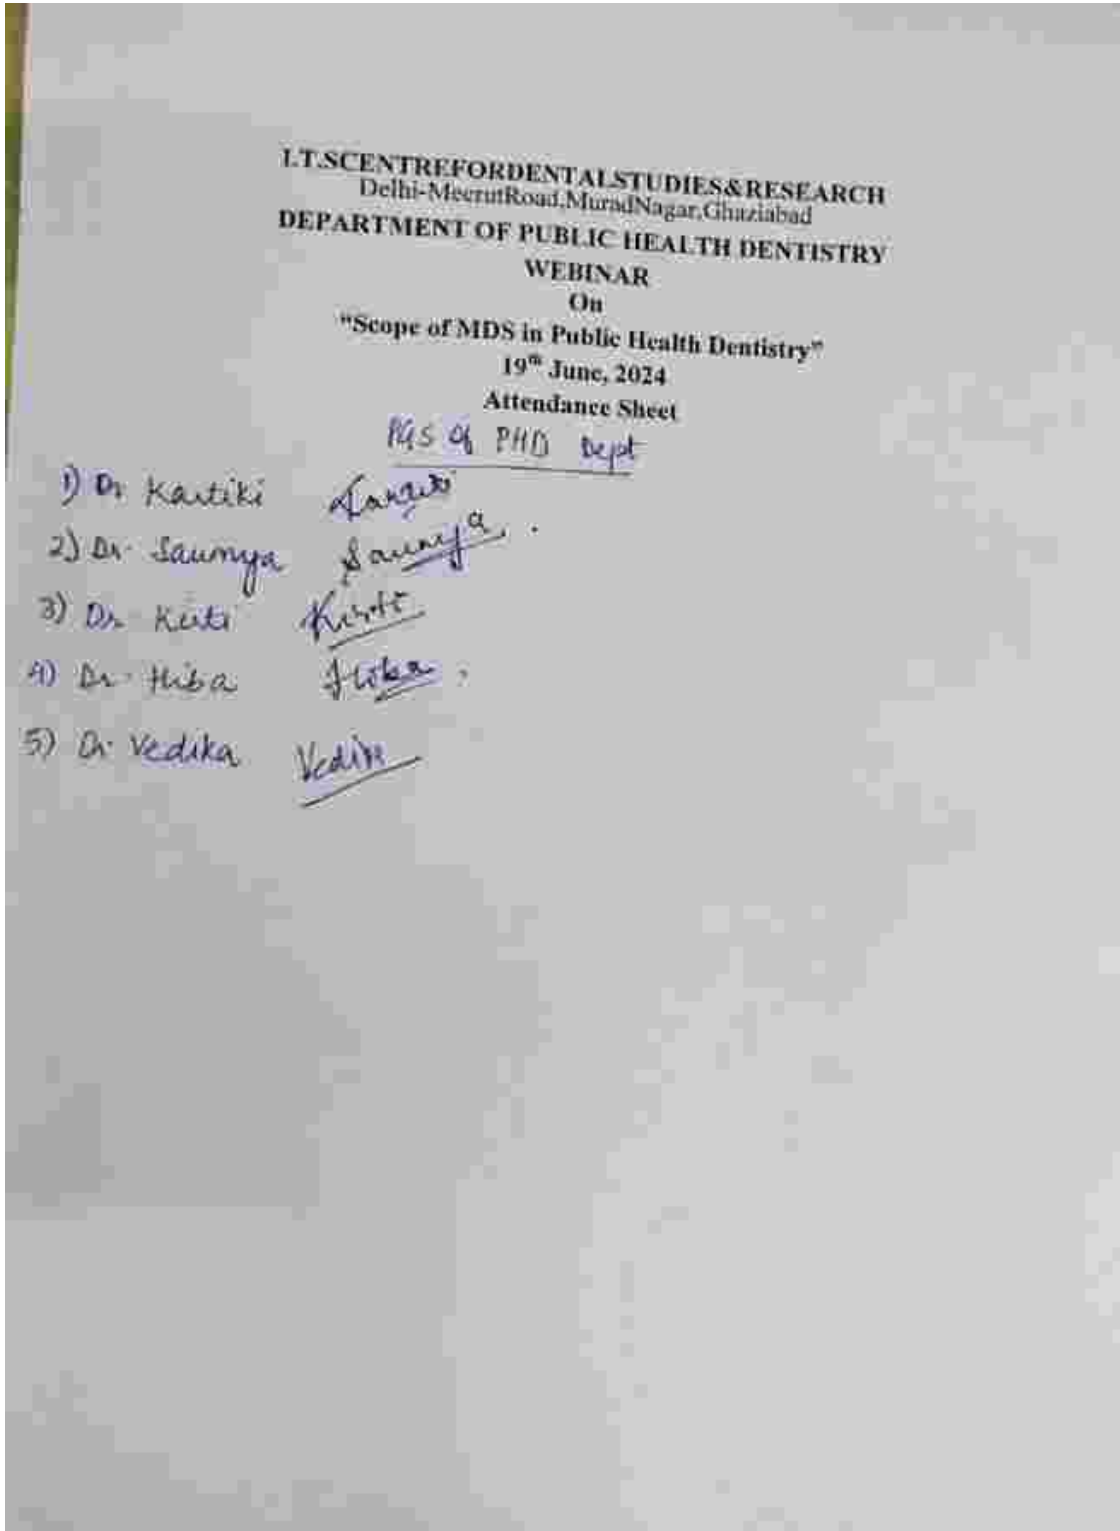 I.T.SCENTREFORDENTALSTUDIES&RESEARCH
Delhi-MeerutRoad,MuradNagar,Ghaziabad
DEPARTMENT OF PUBLIC HEALTH DENTISTRY
WEBINAR
On
"Scope of MDS in Public Health Dentistry"
19th June, 2024
Attendance Sheet
PGS Of PHD Dept
1) Dr Kartiki
2) Dr. Saumya Saumya.
3) Dr. Kirti Kirti
4) Dr. Hiba Hiba.
5) Dr. Vedika Vedika